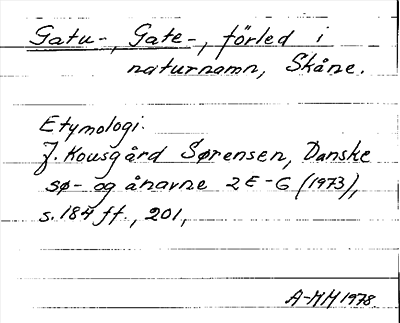 Gatu-, Gate-, förled i
naturnamn, Skåne.
Etymologi:
J. Kousgård Sørensen, Danske
sø- og ånavne 2 E-G (1973),
s. 184 ff., 201,
A-HH 1978.